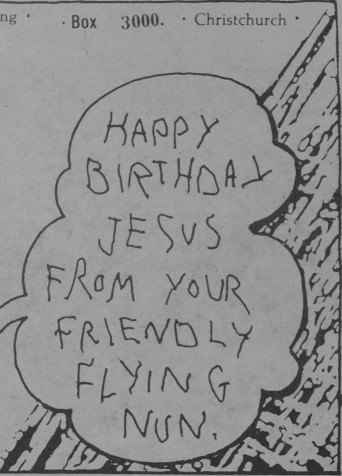 ng · · Box 3000. · Christchurch ·
HAPPY
BIRTHDAY
JESUS
FROM YOUR
FRIENDLY
FLYING
NUN.